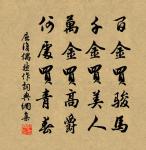 百金買駿馬
千金買美人
萬金買高爵
何處買青春
屈復偶然作詞典網集